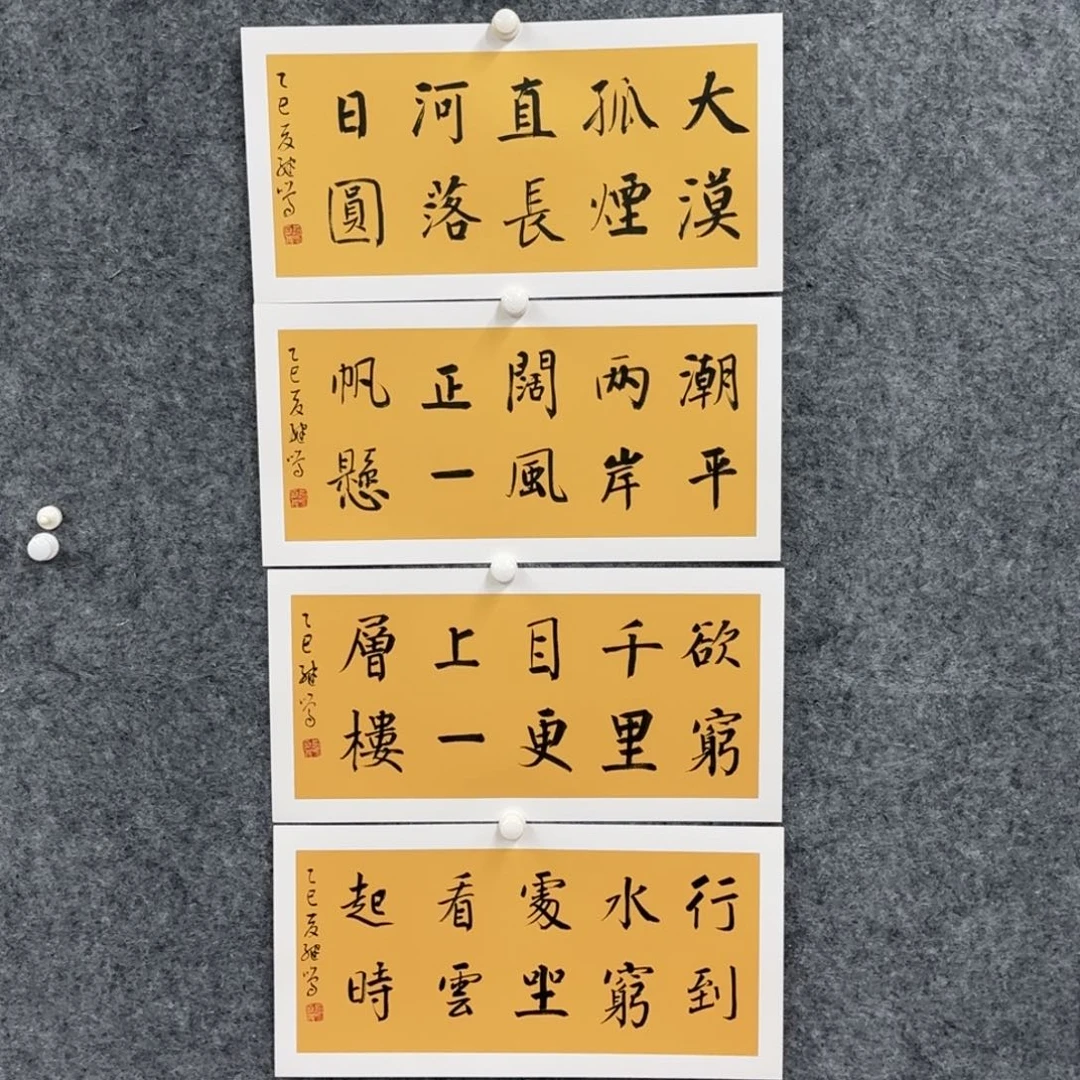 大漠
孤煙
直長
河落
日圓
乙巳夏
潮平
两岸
闊風
正一
帆懸
乙巳夏
欲窮
千里
目更
上一
層樓
乙巳
行到
水窮
處坐
看雲
起時
乙巳夏